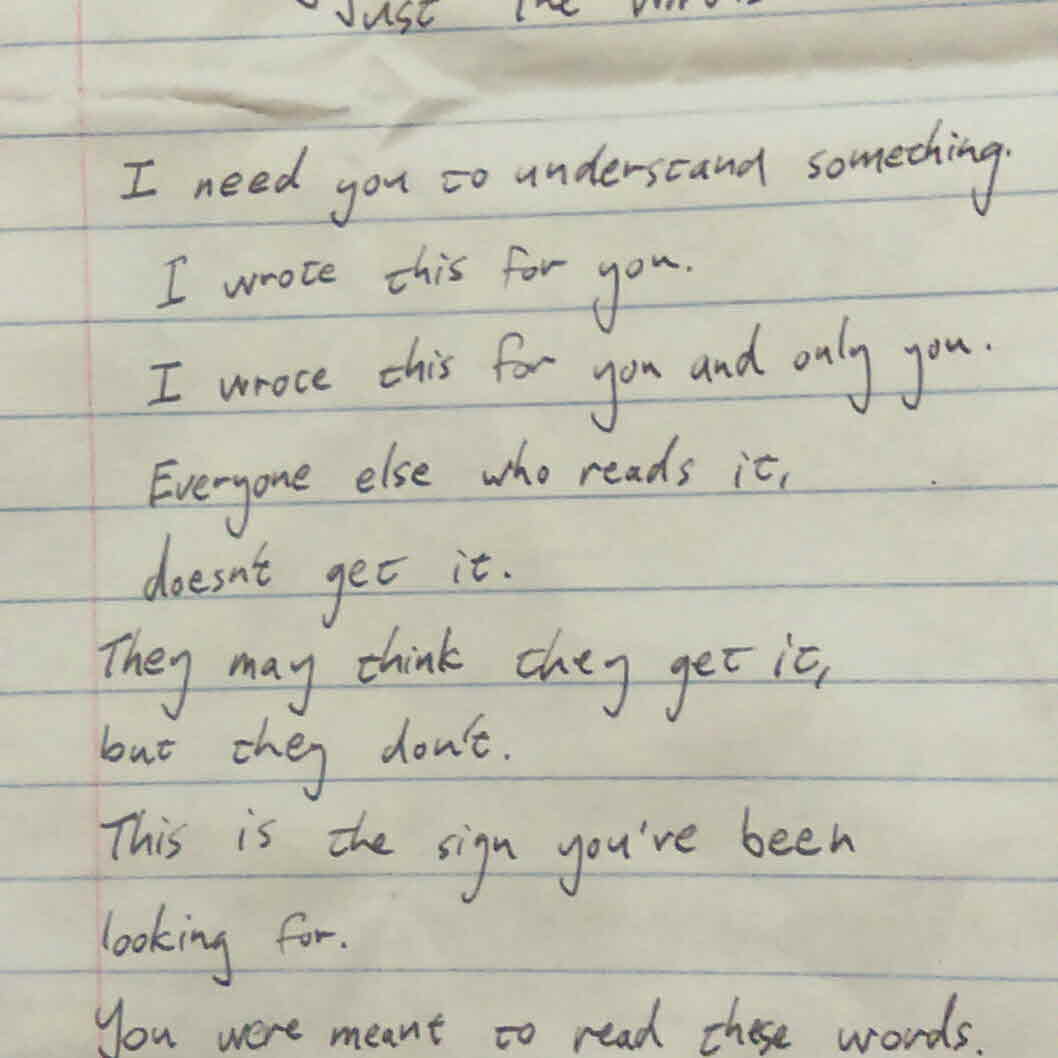 Just the words
I need you to understand something.
I wrote this for you.
I wrote this for you and only you.
Everyone else who reads it,
doesn't get it.
They may think they get it,
but they don't.
This is the sign you've been
looking for.
You were meant to read these words.